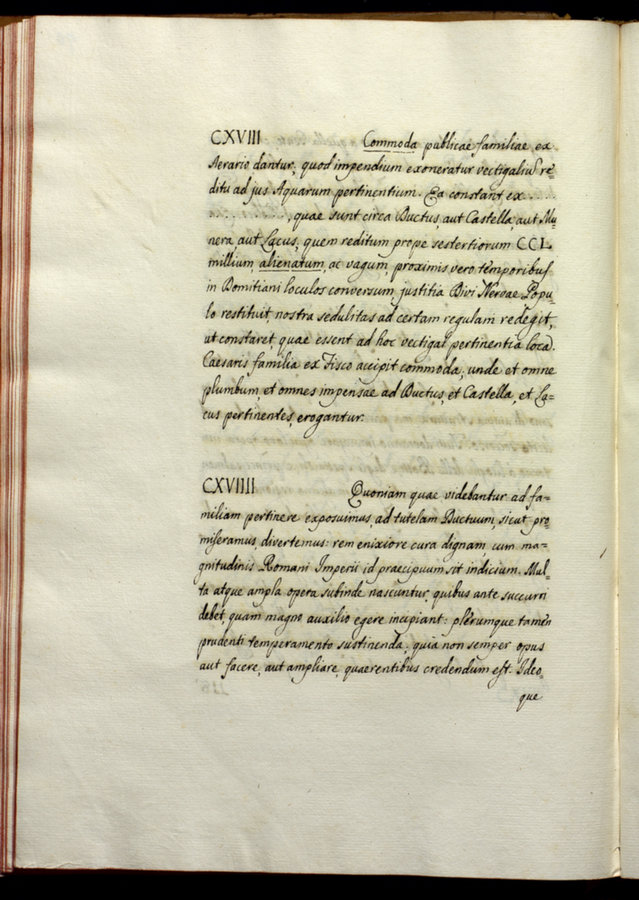 CXVIII Commoda publicae familiae ex
Aerario dantur, quod impendium exoneratur vectigaliũ re=
ditu ad jus Aquarum pertinentium. Ea constant ex . . . .
. . . . . . , quae sunt circa Ductus, aut Castella, aut Mu=
nera, aut Lacus; quem reditum prope sestertiorum CCL
millium, alienatum, ac vagum, proximis vero temporibus
in Domitiani loculos conversum, justitia Divi Nervae Popu=
lo restituit, nostra sedulitas ad certam regulam redegit,
ut constaret, quae essent ad hoc vectigal pertinentia loca.
Caesaris familia ex Fisco accipit commoda; unde et omne
plumbum, et omnes impensae ad Ductus, et Castella, et La=
cus pertinentes, erogantur.
CXVIIII Quoniam quae videbantur ad fa=
miliam pertinere exposuimus, ad tutelam Ductuum, sicut pro
miseramus, divertemus: rem enixiore cura dignam, cum ma=
gnitudinis Romani Imperii id praecipuum sit indicium. Mul=
ta atque ampla opera subinde nascuntur, quibus ante succurri
debet, quam magno auxilio egere incipiant: plerumque tamen
prudenti temperamento sustinenda; quia non semper opus
aut facere, aut ampliare, quaerentibus credendum est. Ideo=
que